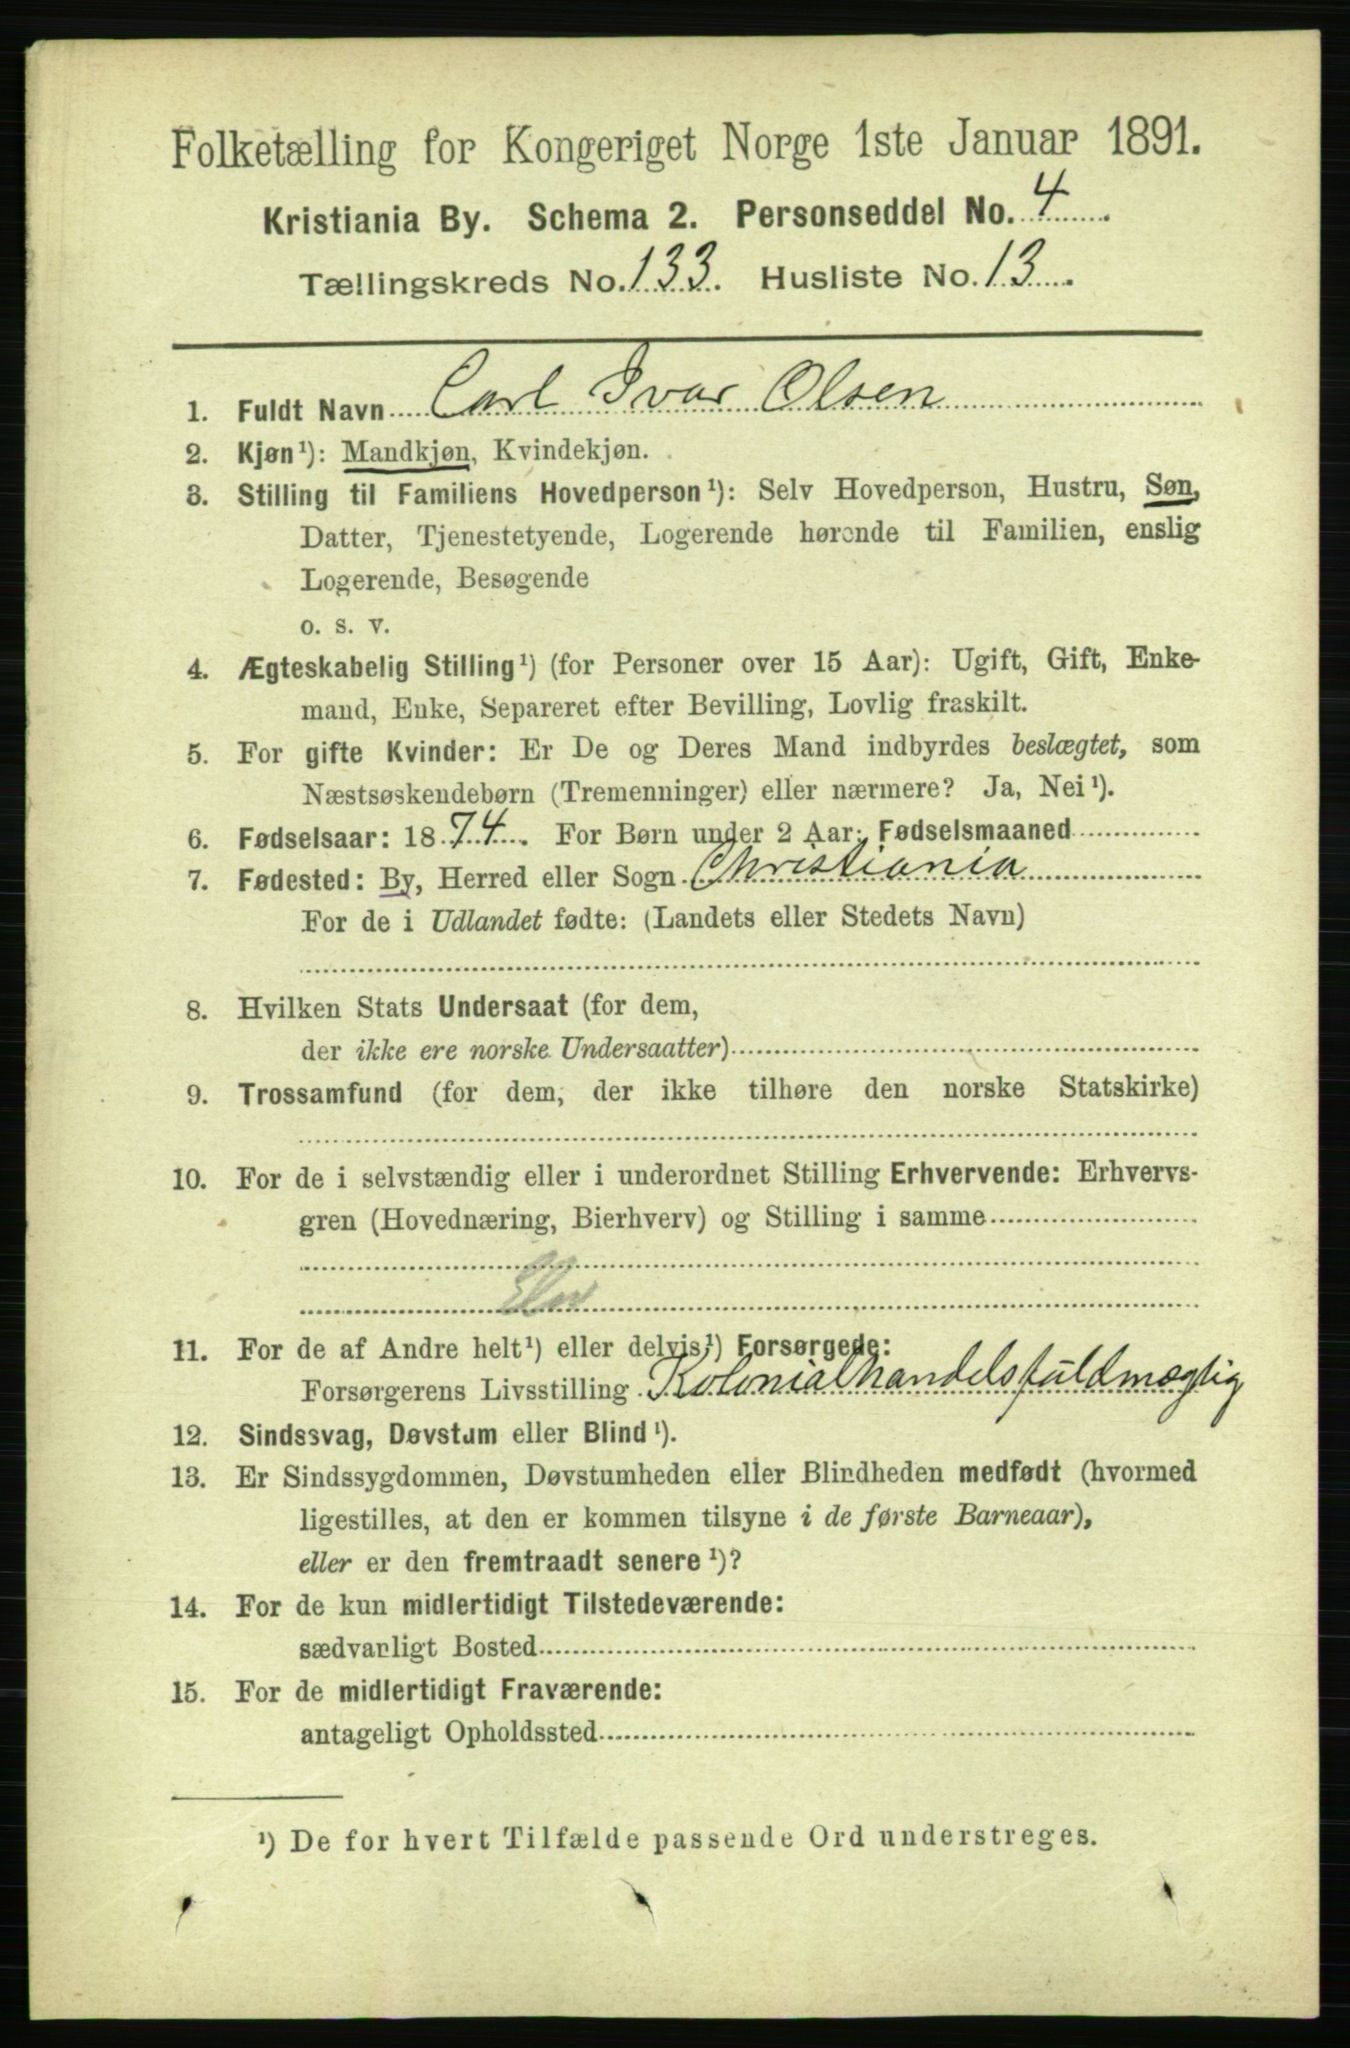 Folketælling for Kongeriget Norge 1ste Januar 1891.
Kristiania By. Schema 2. Personseddel No. 4
Tællingskreds No. 133. Husliste No. 13.
1. Fuldt Navn Carl Ivar Olsen
2. Kjøn¹): Mandkjøn, Kvindekjøn.
3. Stilling til Familiens Hovedperson¹): Selv Hovedperson, Hustru, Søn,
Datter, Tjenestetyende, Logerende hørende til Familien, enslig
Logerende, Besøgende
o. s. v.
4. Ægteskabelig Stilling¹) (for Personer over 15 Aar): Ugift, Gift, Enke-
mand, Enke, Separeret efter Bevilling, Lovlig fraskilt.
5. For gifte Kvinder: Er De og Deres Mand indbyrdes beslægtet, som
Næstsøskendebørn (Tremenninger) eller nærmere? Ja, Nei¹).
6. Fødselsaar: 1874. For Børn under 2 Aar: Fødselsmaaned
7. Fødested: By, Herred eller Sogn Christiania
For de i Udlandet fødte: (Landets eller Stedets Navn)
8. Hvilken Stats Undersaat (for dem,
der ikke ere norske Undersaatter)
9. Trossamfund (for dem, der ikke tilhøre den norske Statskirke)
10. For de i selvstændig eller i underordnet Stilling Erhvervende: Erhvervs-
gren (Hovednæring, Bierhverv) og Stilling i samme
Elev
11. For de af Andre helt¹) eller delvis¹) Forsørgede:
Forsørgerens Livsstilling Kolonialhandelsfuldmægtig
12. Sindssvag, Døvstum eller Blind¹).
13. Er Sindssygdommen, Døvstumheden eller Blindheden medfødt (hvormed
ligestilles, at den er kommen tilsyne i de første Barneaar),
eller er den fremtraadt senere¹)?
14. For de kun midlertidigt Tilstedeværende:
sædvanligt Bosted
15. For de midlertidigt Fraværende:
antageligt Opholdssted
¹) De for hvert Tilfælde passende Ord understreges.